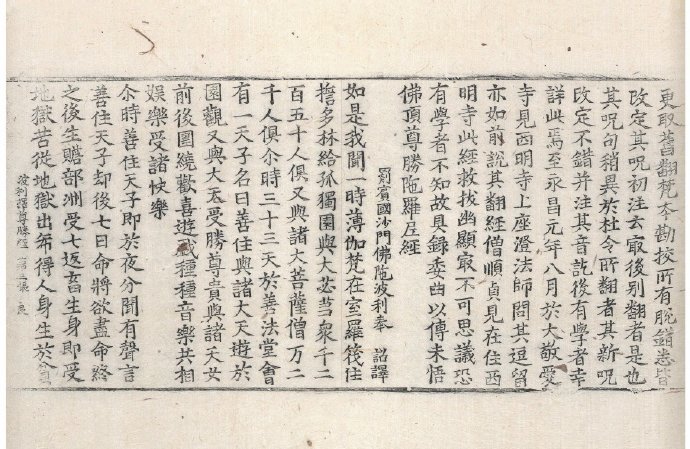 更取舊翻梵本勘挍所有脫錯悉皆
改定其呪初注云最後別翻者是也
其呪句稍異於杜令所翻者其新呪
改定不錯并注其音訖後有學者幸
詳此焉至永昌元年八月於大敬愛
寺見西明寺上座澄法師問其逗留
亦如前說其翻經僧順貞見在住西
明寺此經救拔幽顯最不可思議恐
有學者不知故具錄委曲以傳未悟
佛頂尊勝陁羅尼經
罽賓國沙門佛陁波利奉 詔譯
如是我聞一時薄伽梵在室羅筏住
誓多林給孤獨園與大苾蒭衆千二
百五十人俱又與諸大菩薩僧万二
千人俱尒時三十三天於善法堂會
有一天子名曰善住與諸大天遊於
園觀又與大天受勝尊貴與諸天女
前後圍繞歡喜遊戲種種音樂共相
娛樂受諸快樂
尒時善住天子即於夜分聞有聲言
善住天子却後七日命將欲盡命終
之後生贍部洲受七返畜生身即受
地獄苦從地獄出希得人身生於貧
波利譯尊勝經 張